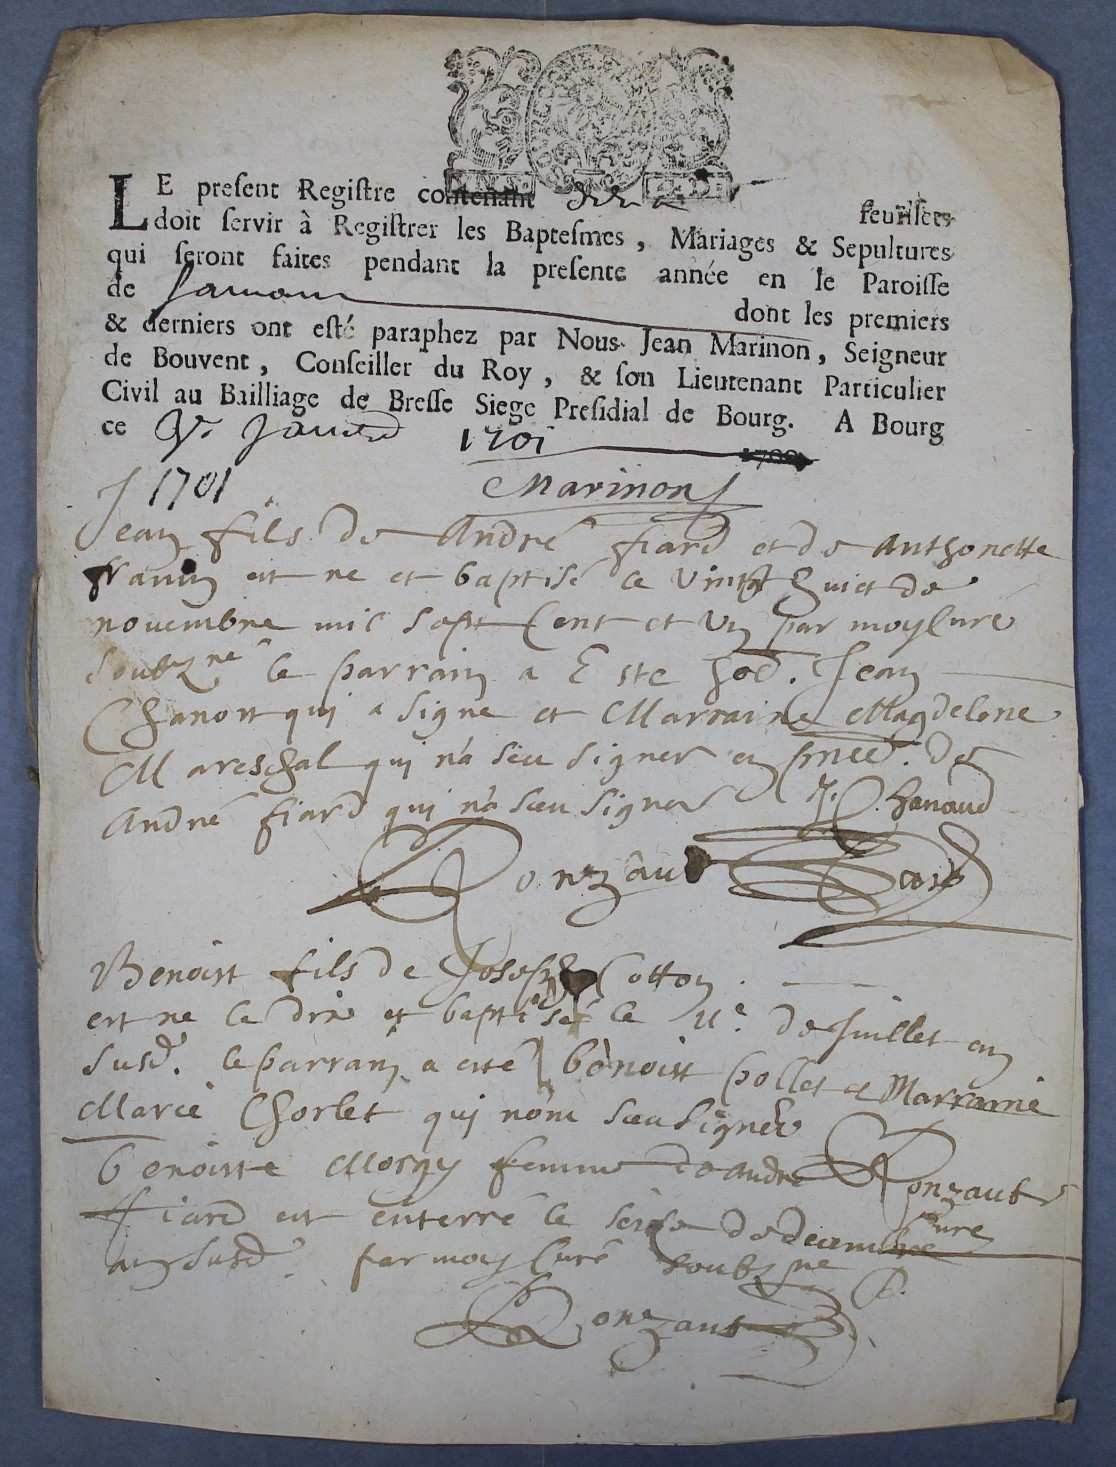 LE present Registre contenant feuillets
doit servir à Registrer les Baptesmes, Mariages & Sepultures
qui seront faites pendant la presente année en le Paroisse
de dont les premiers
& derniers ont esté paraphez par Nous Jean Marinon, Seigneur
de Bouvent, Conseiller du Roy, & son Lieutenant Particulier
Civil au Bailliage de Bresse Siege Presidial de Bourg. A Bourg
ce 1701
1701 Marinon
Jean fils de André fiard et de Anthonette
est ne et baptisé le Vingt huict de
novembre mil sept Cent et Un par moy Curé
soubzné le parrain a Esté hoē. Jean
Chanort qui a signé et Marraine Magdelene
Mareschal qui n'a sceu signer en pnce. de
André fiard qui n'a sceu signer J. Chanaud
Ronzaut Curé
Benoist fils de Joseph Cotton
est ne le dix et baptisé le 11e de Juillet an
susd. le parrain a esté benoist pollet et Marraine
Marie Chorlet qui n'ont sceu signer
benoiste femme de André Ronzaut
fiard est enterré le seise de decembre Curé
an susd. par moy Curé soubzné
Ronzaut